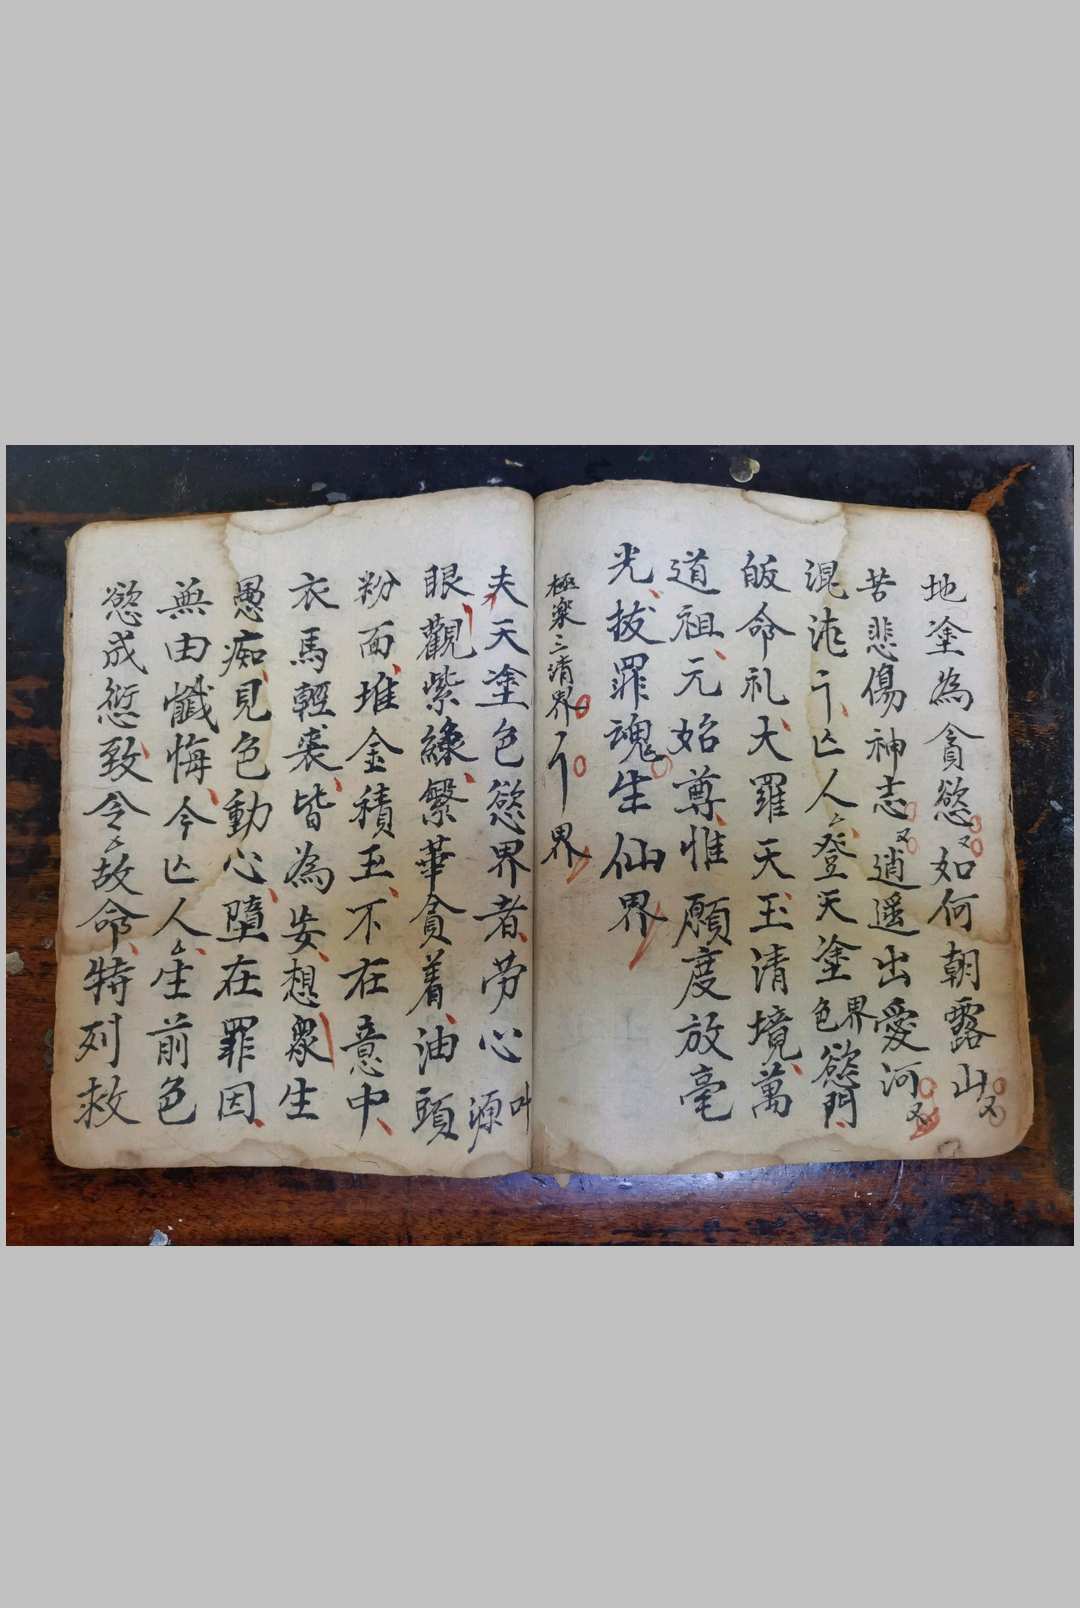 地塗為貪慾又如何朝露山又
苦悲傷神志又逍遥出愛河又
混沌亡人登天塗色界慾門
皈命礼大羅天玉清境萬
道祖元始尊惟願度放毫
光拔罪魂生仙界
極楽三清界
界
夫天塗色慾界者劳心源
眼觀紫綠繁華貪着油頭
粉面堆金積玉不在意中
衣馬輕裘皆為妄想衆生
愚痴見色動心墮在罪因
無由懺悔今亾人生前色
慾成愆致令故命特列救